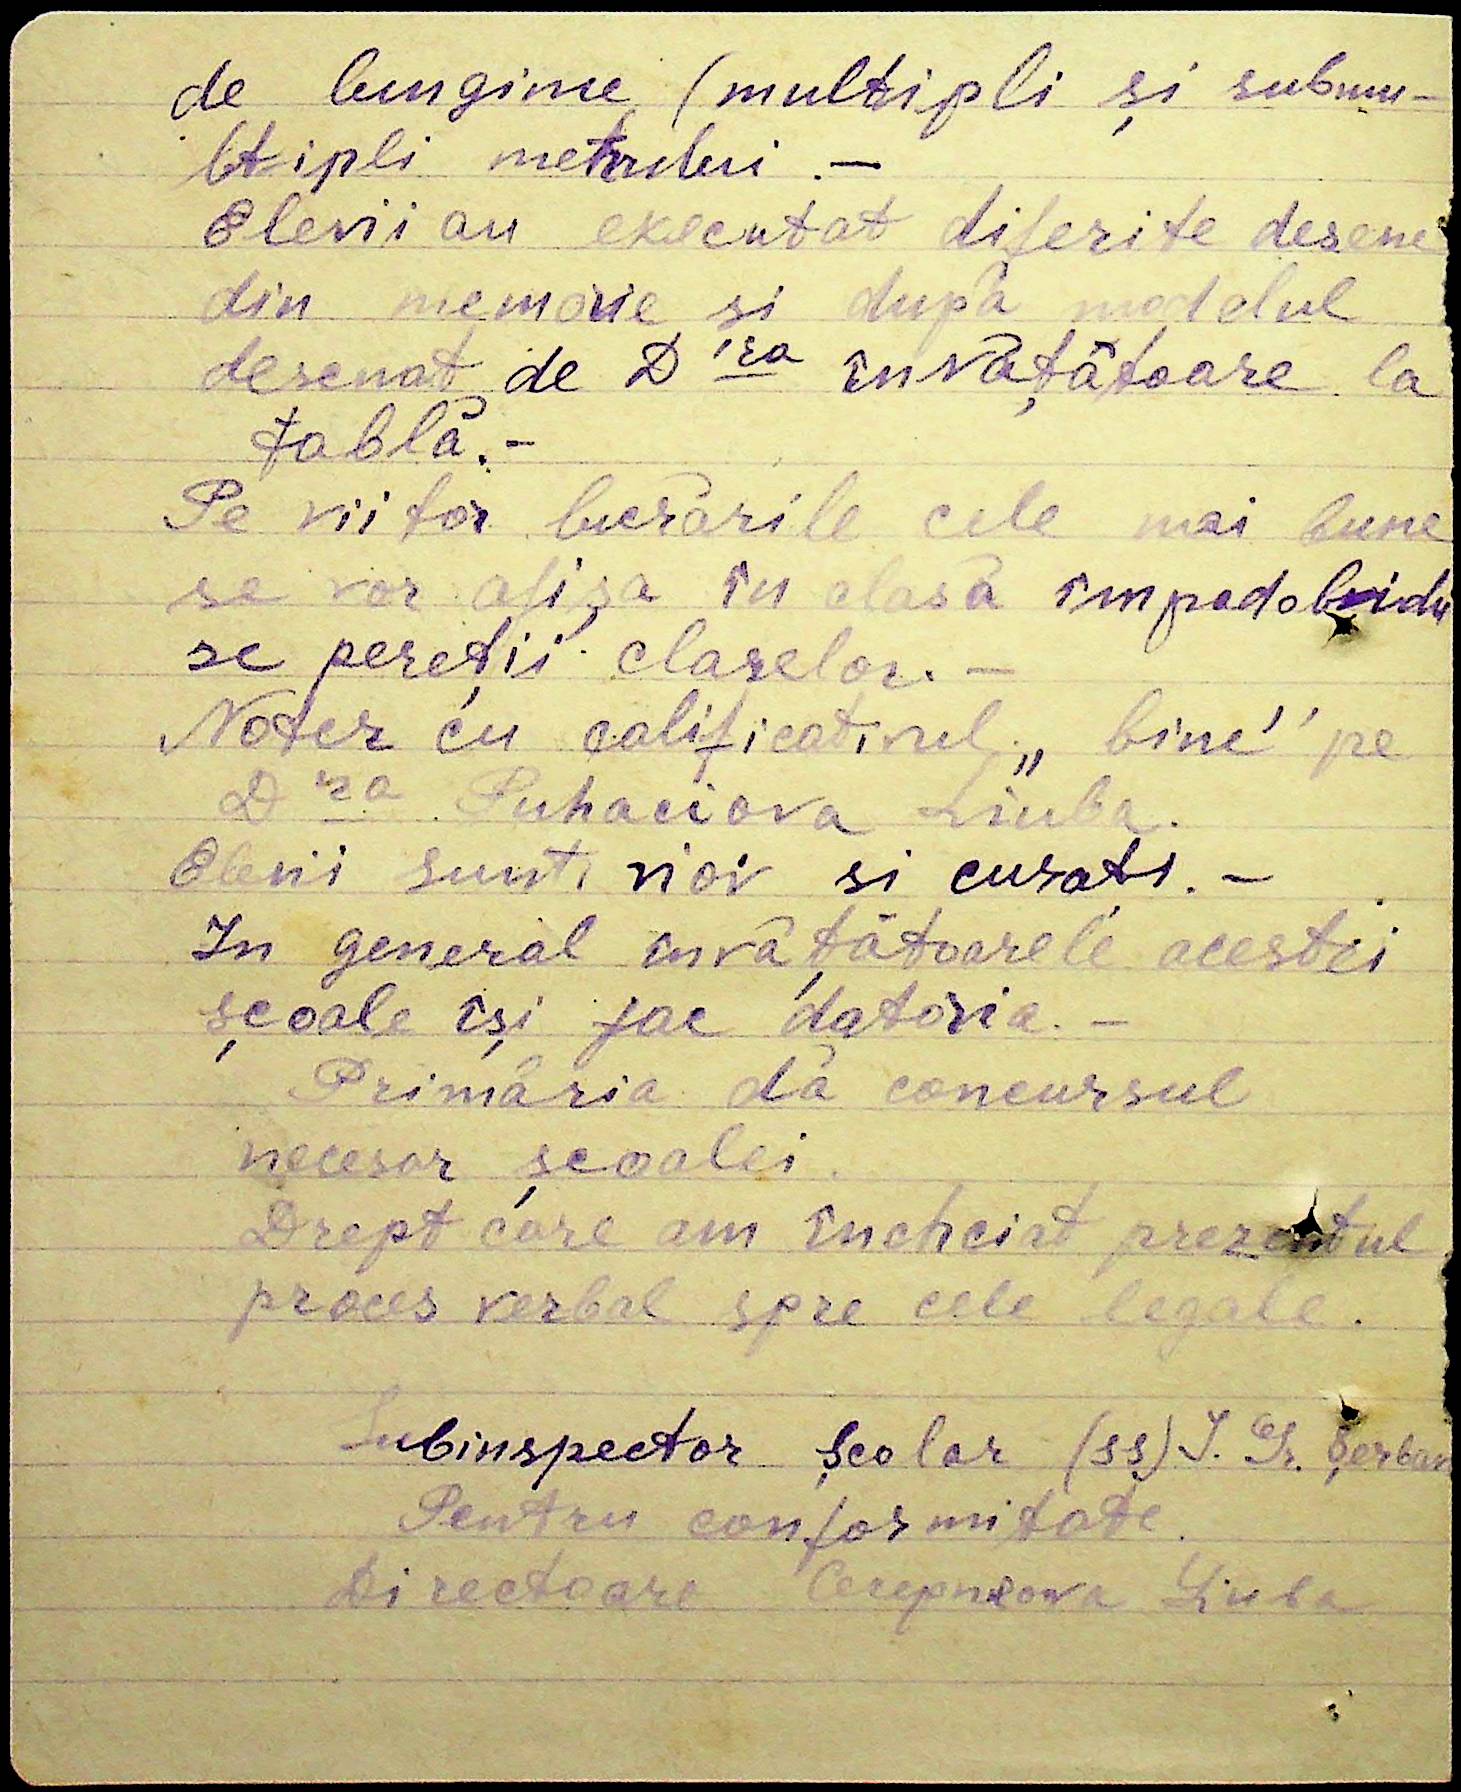 de lungime (multipli și submu-
ltipli metrului.—
Elevii au executat diferite desene
din memorie si după modelul
desenat de D'ra învățătoare la
tablă.-
Pe viitor lucrările cele mai bune
se vor afișa în clasă împodobindu
se pereții claselor.—
Notez cu calificativul „bine" pe
Dra Puhaciova Liuba.
Elevii sunt vioi si curati.—
In general învățătoarele acestei
școale își fac datoria.—
Primăria dă concursul
necesar școalei.
Drept care am încheiat prezentul
proces verbal spre cele legale.
Subinspector Școlar (ss) I. Gr. Șerban
Pentru conformitate.
Directoare Liuba